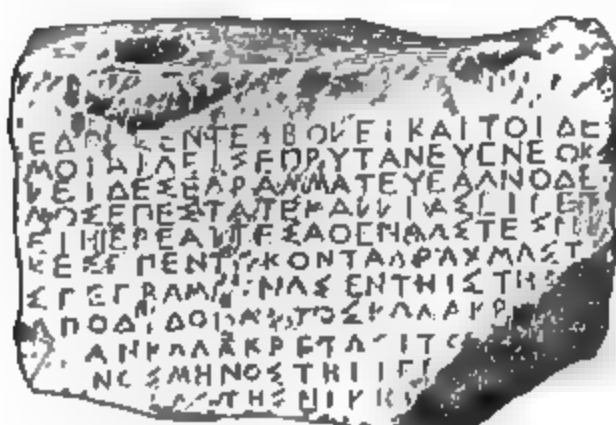 ΕΔΟΧΣΕΝΤΕΙΒΟΛΕΙΚΑΙΤΟΙΔΕ
ΜΟΙΑΙΓΕΙΣΕΠΡΥΤΑΝΕΥΕΝΕΟΚ
ΛΕΙΔΕΣΕΓΡΑΜΜΑΤΕΥΕΑΓΝΟΔΕ
ΜΟΣΕΠΕΣΤΑΤΕΚΑΛΛΙΑΣΕΙΠΕΤ
ΕΙΗΙΕΡΕΑΙΤΕΣΑΘΕΝΑΑΣΤΕΣΝΙ
ΚΕΣΠΕΝΤΕΚΟΝΤΑΔΡΑΧΜΑΣΤ
ΣΓΕΓΡΑΜΜΕΝΑΣΕΝΤΗΙΣΤΗ
ΑΠΟΔΙΔΟΝΑΙΤΟΣΚΩΛΑΚΡ
ΑΝΚΩΛΑΚΡΕΤΩΣΙΤΟ
ΝΟΣΜΗΝΟΣΤΗΙΙΕΡ
ΑΣΤΗΣΝΙΚΗ